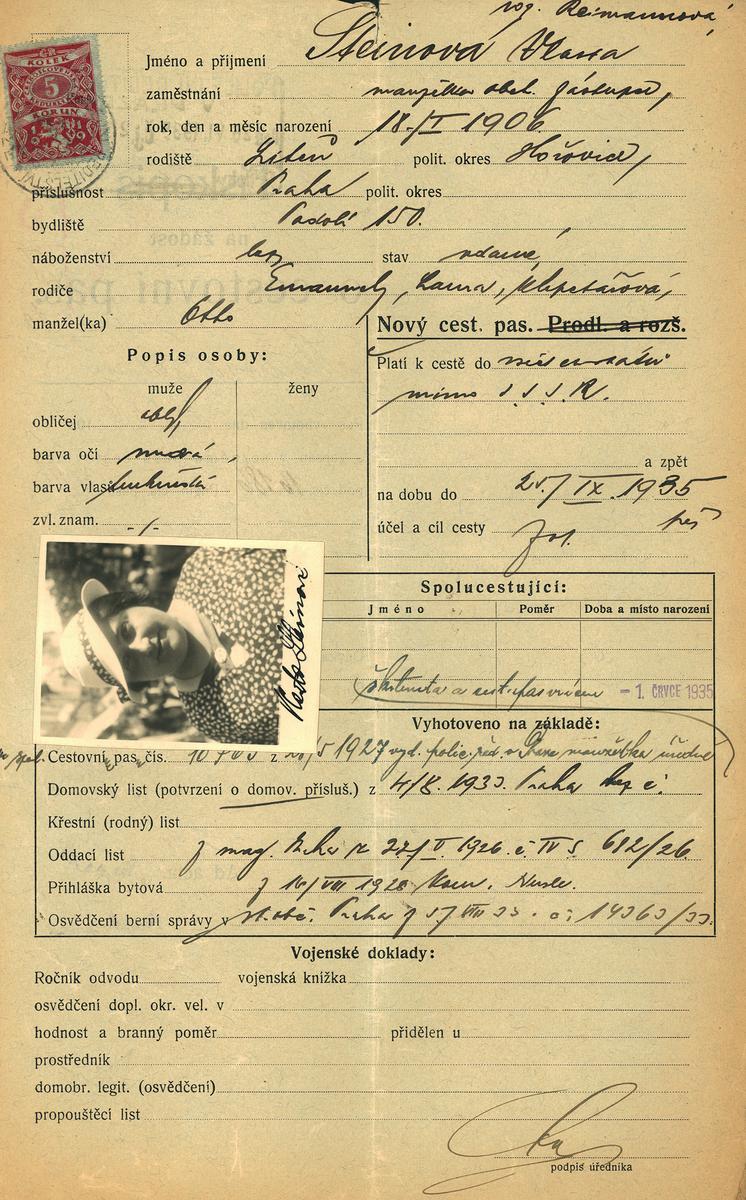 roz. Reimannová
KOLEK
5
KORUN
Jméno a příjmení Steinová Vlasta
zaměstnání manželka obch. zástupce,
rok, den a měsíc narození 18./I 1906.
rodiště Liteň polit. okres Hořovice,
příslušnost Praha polit. okres
bydliště Podolí 150.
náboženství bez stav vdaná,
rodiče Emanuel, Laura, Klepetářová,
manžel(ka) Otto
Nový cest. pas. Prodl. a rozš.
Popis osoby:
muže ženy
obličej obl.
barva očí modrá,
barva vlasů
zvl. znam. -/-
Platí k cestě do
mimo S.S.S.R.
a zpět
na dobu do 25./IX. 1935
účel a cíl cesty
Vlasta Steinová
Spolucestující:
Jméno Poměr Doba a místo narození
- 1. ČRVCE 1935
Vyhotoveno na základě:
Cestovní pas čís. z 1927 vyd. polic. řed. v Praze manželka
Domovský list (potvrzení o domov. přísluš.) z 4/8. 1933. Praha
Křestní (rodný) list
Oddací list z mag. Praha z 27/V. 1926. č. IV S. 682/26.
Přihláška bytová z 16/VIII 1928 Kom. Nusle.
Osvědčení berní správy v Praha VIII 33. č: 14363/33.
Vojenské doklady:
Ročník odvodu vojenská knížka
osvědčení dopl. okr. vel. v
hodnost a branný poměr přidělen u
prostředník
domobr. legit. (osvědčení)
propouštěcí list
podpis úředníka